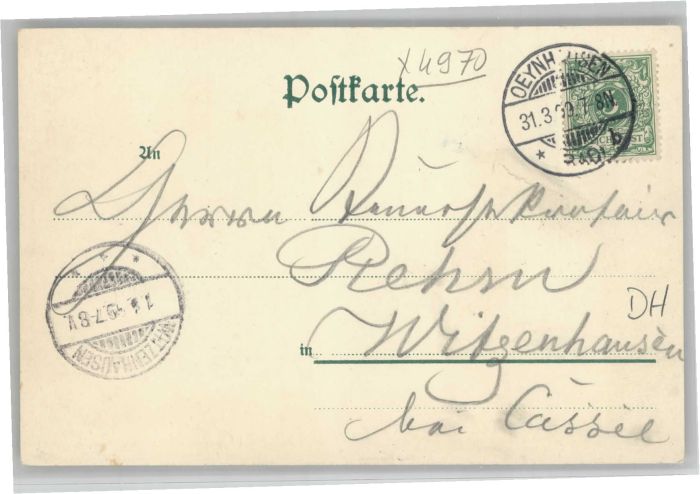 x4970
Postkarte.
OEYNHAUSEN
31.3.99.7-8N.
* b
An
Herrn
in Witzenhausen
DH
bei Cassel
WITZENHAUSEN
1.4.99.7-8V.